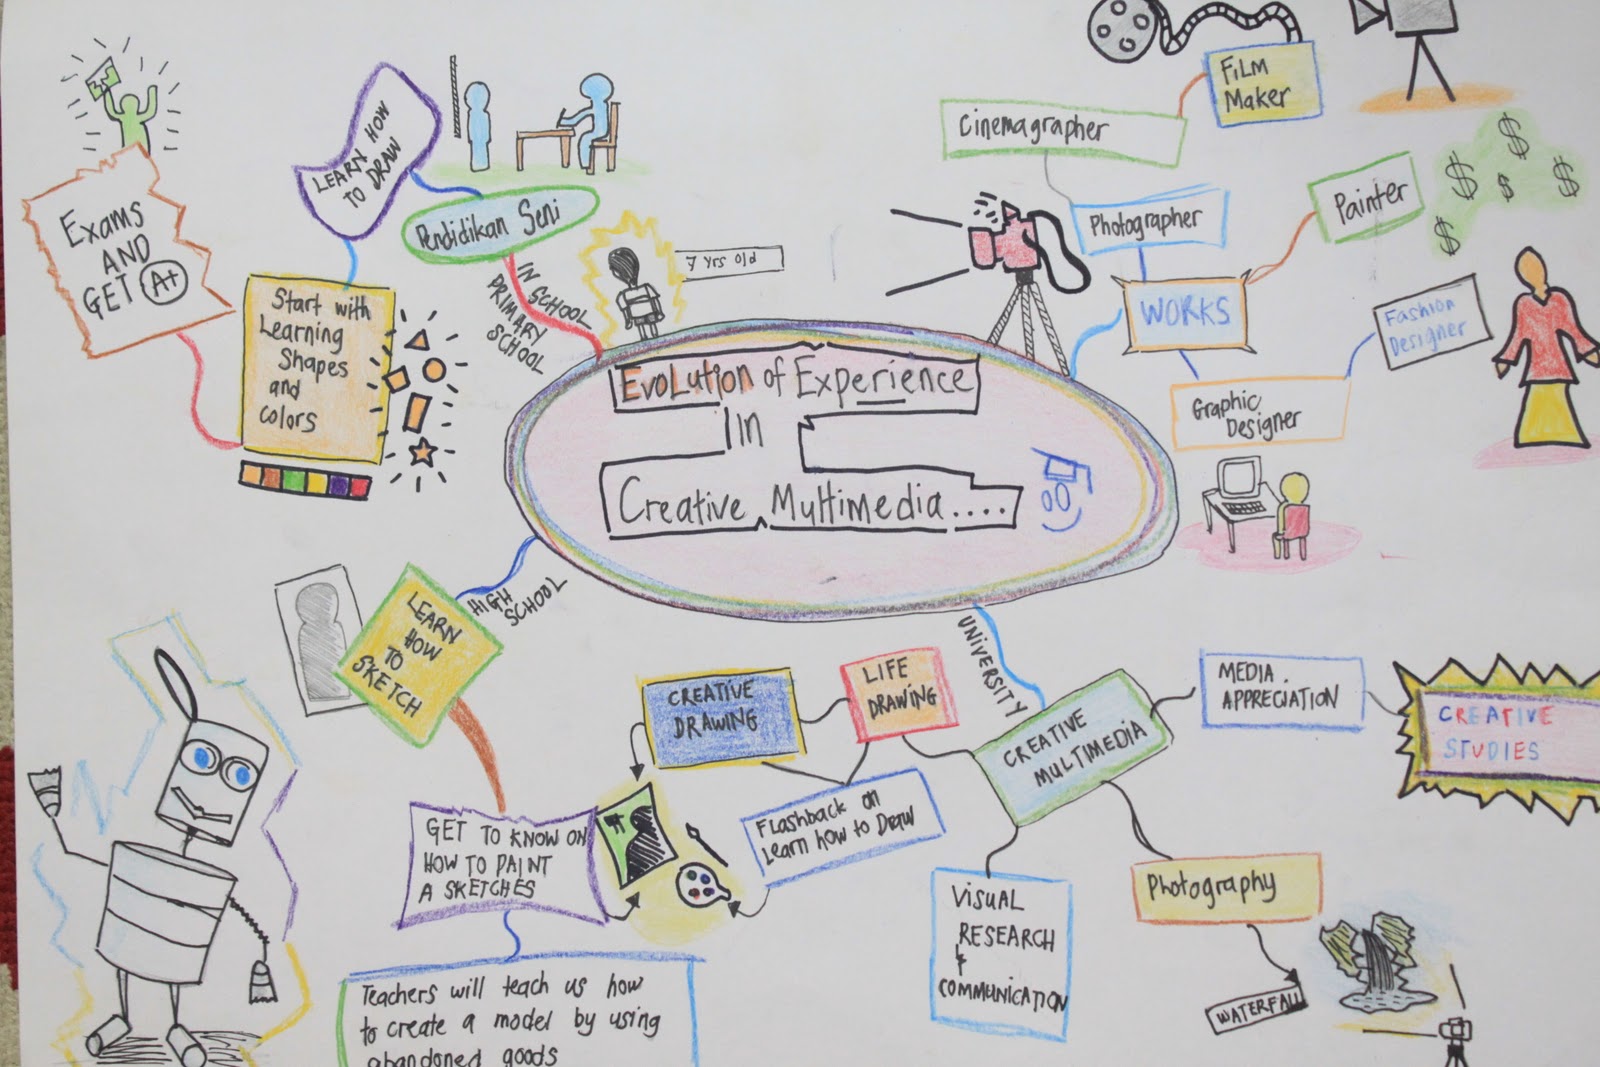 Evolution of Experience
In
Creative Multimedia....
7 yrs old
IN SCHOOL
PRIMARY
SCHOOL
Pendidikan Seni
LEARN HOW
TO DRAW
Start with
Learning
Shapes
and
colors
Exams
AND
GET A+
HIGH
SCHOOL
LEARN
HOW
TO
SKETCH
GET TO KNOW ON
HOW TO PAINT
A SKETCHES
Teachers will teach us how
to create a model by using
abandoned goods
UNIVERSITY
CREATIVE
MULTIMEDIA
LIFE
DRAWING
CREATIVE
DRAWING
Flashback on
Learn how to Draw
VISUAL
RESEARCH
&
COMMUNICATION
Photography
WATERFALL
MEDIA
APPRECIATION
CREATIVE
STUDIES
WORKS
Photographer
Cinemagrapher
FiLM
Maker
Painter
$ $ $ $ $
Fashion
Designer
Graphic
Designer